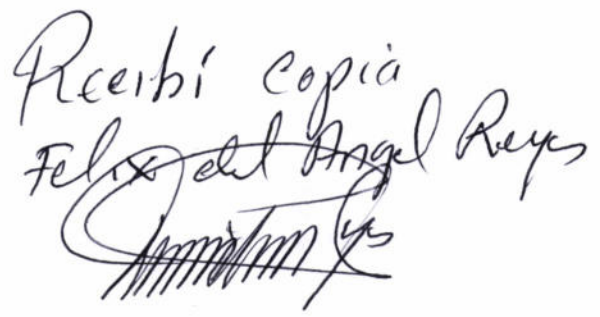 Recibí copia
Felix del Angel Reyes